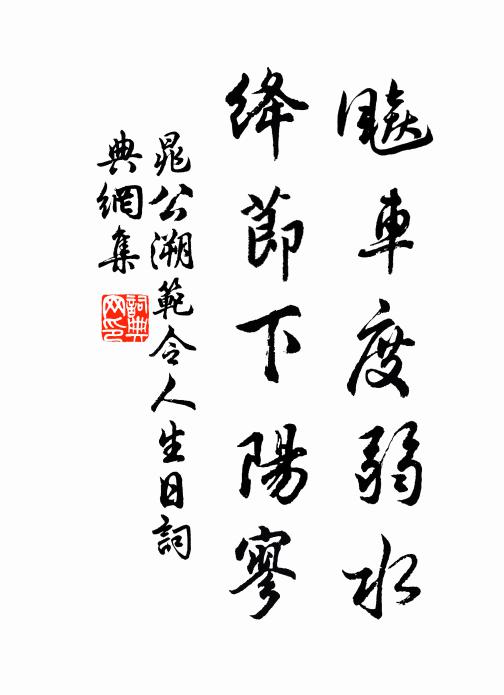 飈車度弱水
絳節下陽寥
晁公溯範令人生日詞
典網集
詞典網印